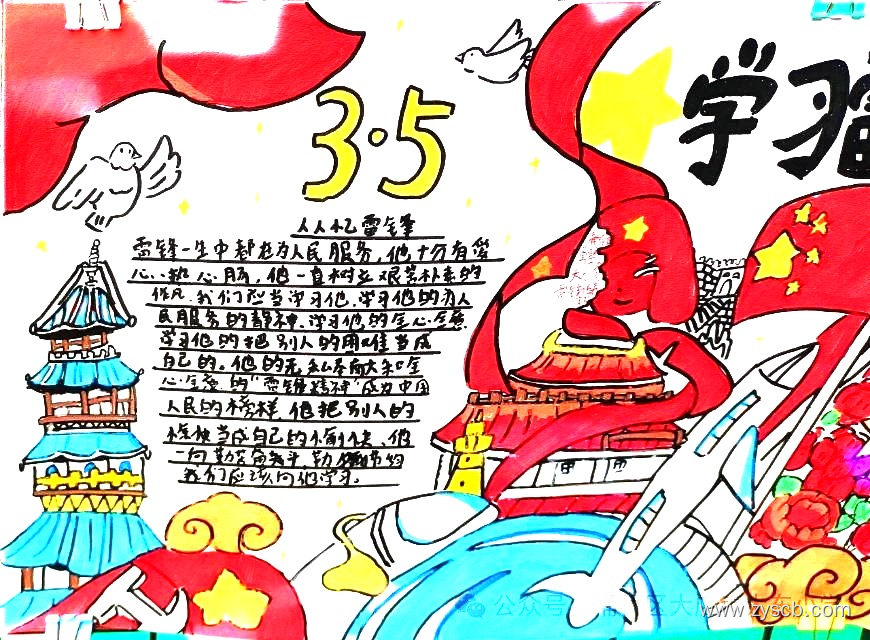 3·5
学习雷
人人忆雷锋
雷锋一生中都在为人民服务，他十分有爱
心、热心肠，他一直树立艰苦朴素的
作风，我们应当学习他，学习他的为人
民服务的精神，学习他的全心全意
学习他的把别人的困难当成
自己的。他的无私奉献和全
心全意的"雷锋精神"成为中国
人民的榜样，他把别人的
当成自己的愉快，他
一向勤劳
我们应该向他学习。
公众号
www.zyscb.com